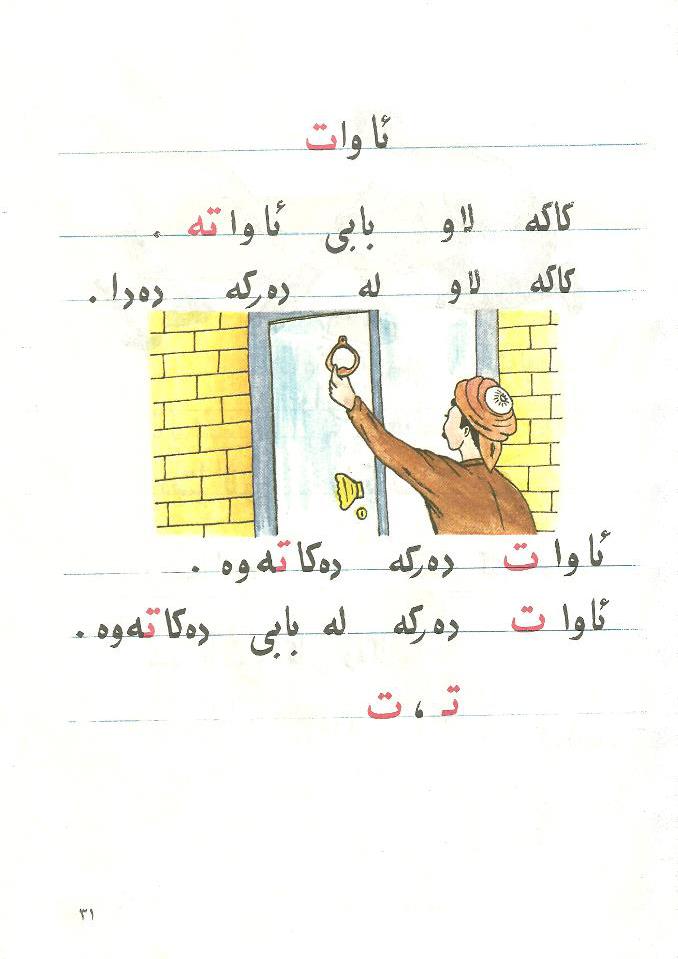 ئاوات
کاکە لاو بابی ئاواتە .
کاکە لاو لە دەرکە دەدا .
ئاوات دەرکە دەکاتەوە .
ئاوات دەرکە لە بابی دەکاتەوە .
تـ ، ت
٣١